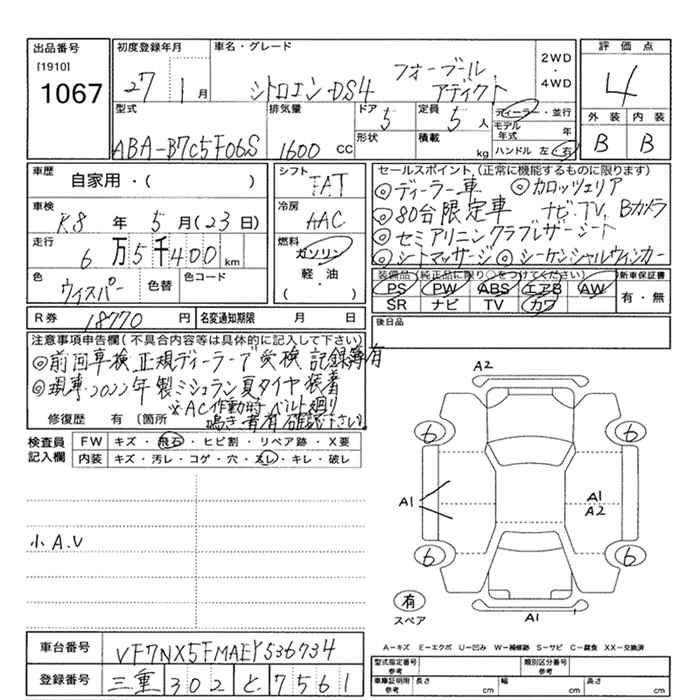 出品番号
[1910]
1067
初度登録年月
27 1月
車名・グレード
シトロエン・DS4 フォーブール アディクト
2WD・4WD
評価点
4
外装 内装
B B
型式
ABA-B7C5F06S
排気量
1600 cc
ドア
5
形状
定員
5 人
積載
kg
ディーラー・並行
モデル年式 年
ハンドル 左・右
車歴
自家用・( )
車検
R8 年 5 月 (23 日)
走行
6 万 5 千 400 km
色
ウィスパー
色替
色コード
シフト
FAT
冷房
AAC
燃料
ガソリン
軽・油
( )
セールスポイント(正常に機能するものに限ります)
◎ディーラー車 ◎カロッツェリア
◎80台限定車 ナビ・TV、Bカメラ
◎セミアリニンクラブレザーシート
◎シートマッサージ ◎シーケンシャルウィンカー
装備品(純正品に限り○をつけてください)
PS PW ABS エアB AW
SR ナビ TV カワ
新車保証書
有・無
R券
18770 円
名変通知期限 月 日
後日品
注意事項申告欄(不具合内容等は具体的に記入して下さい)
◎前回車検正規ディーラーで受検 記録簿有
◎現車・2022年製ミシュラン夏タイヤ装着
※AC作動時ベルト廻り
鳴き音有 確認下さい。
修復歴 有 〔箇所
検査員記入欄
FW キズ・飛石・ヒビ割・リペア跡・X要
内装 キズ・汚レ・コゲ・穴・スレ・キレ・破レ
小A.U
A2
6 6
A1 A1
A2
6 6
有
スペア
A1
A-キズ E-エクボ U-凹み W-補修跡 S-サビ C-腐食 XX-交換済
車台番号
VF7NX5FMAEY536734
登録番号
三重 302 と 7561
型式指定番号
参考
類別区分番号
参考
車庫証明用
参考
長さ cm 幅 cm 高さ cm